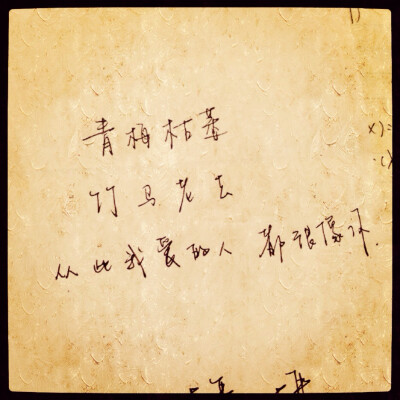 青梅枯萎
竹马老去
从此我爱的人 都很像你.
x)=